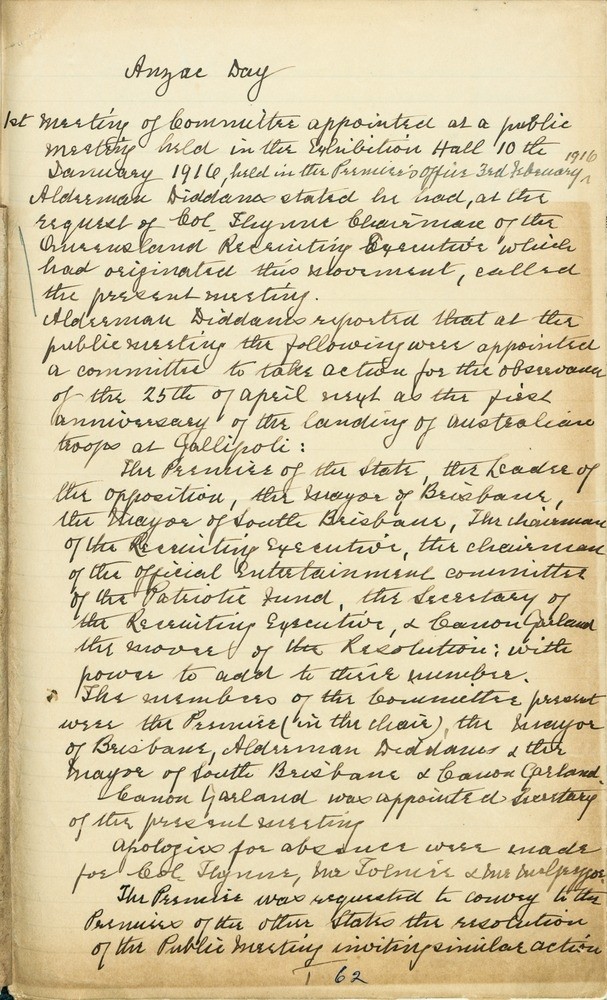 Anzac Day
1st meeting of Committee appointed at a public
meeting held in the Exhibition Hall 10th
January 1916, held in the Premier's Office 3rd February 1916
Alderman Diddams stated he had, at the
request of Col. Thynne Chairman of the
Queensland Recruiting Executive which
had originated this movement, called
the present meeting.
Alderman Diddams reported that at the
public meeting the following were appointed
a committee to take action for the observance
of the 25th of April next as the first
anniversary of the landing of Australian
troops at Gallipoli:
The Premier of the State, the Leader of
the opposition, the Mayor of Brisbane,
the Mayor of South Brisbane, The chairman
of the Recruiting Executive, the chairman
of the Official Entertainment committee
of the Patriotic Fund, the Secretary of
the Recruiting Executive, & Canon Garland
the mover of the Resolution; with
power to add to their number.
The members of the Committee present
were the Premier (in the chair), the Mayor
of Brisbane, Alderman Diddams & the
Mayor of South Brisbane & Canon Garland.
Canon Garland was appointed Secretary
of the present meeting
Apologies for absence were made
for Col Thynne, Mr Tolmie & Mr McGregor
The Premier was requested to convey to the
Premiers of the other States the resolution
of the Public Meeting inviting similar action
1 62